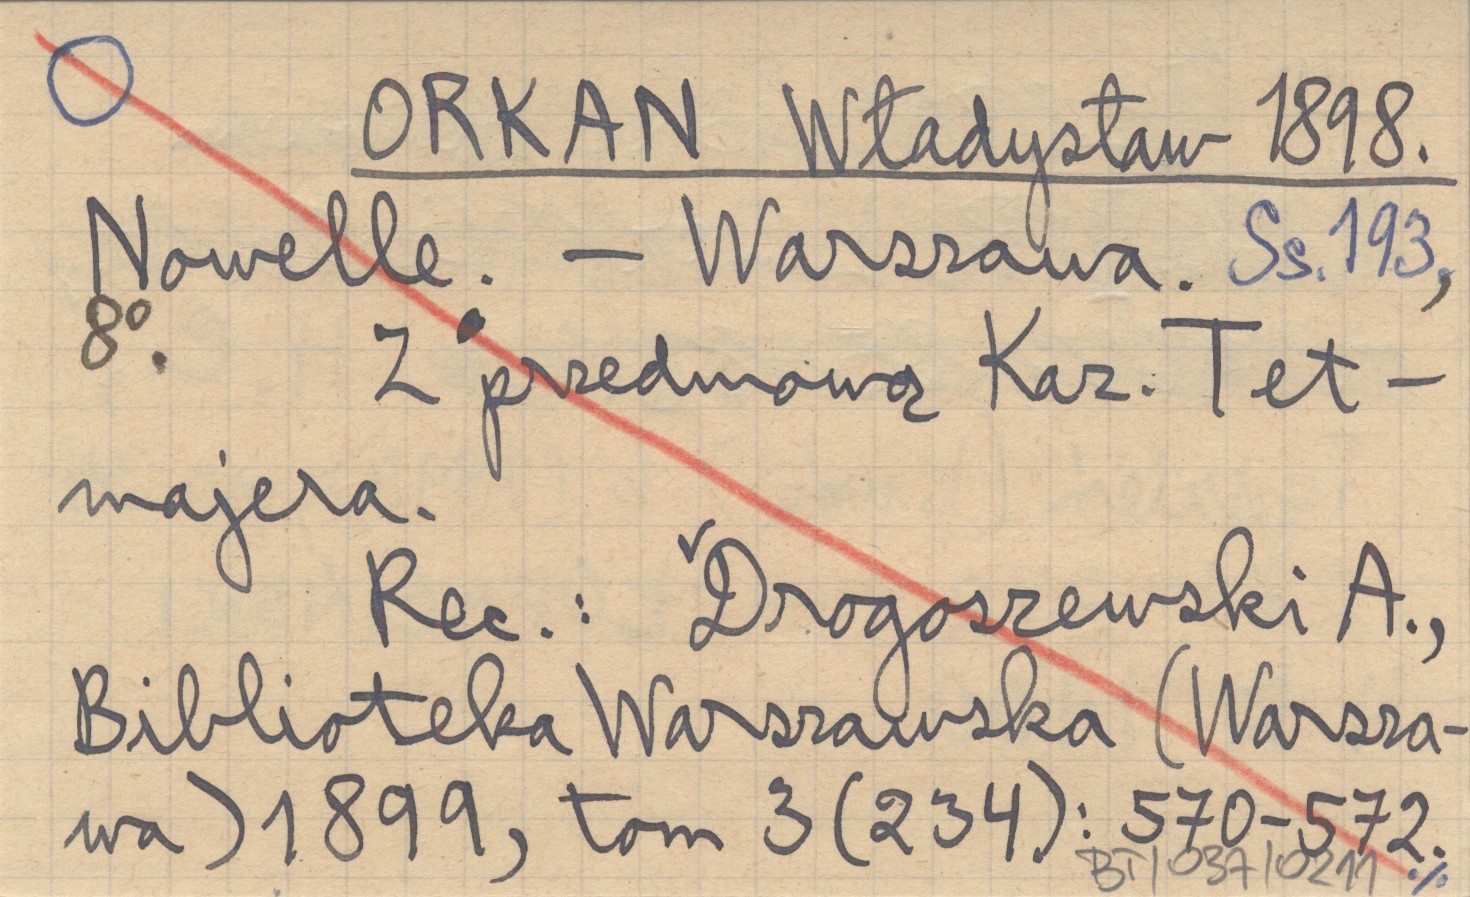 ORKAN Władysław 1898.
Nowelle. — Warszawa. Ss. 193,
8°. Z przedmową Kaz. Tet-
majera.
Rec.: Drogoszewski A.,
Biblioteka Warszawska (Warsza-
wa) 1899, tom 3 (234): 570-572.
BT/037/0211 ./.